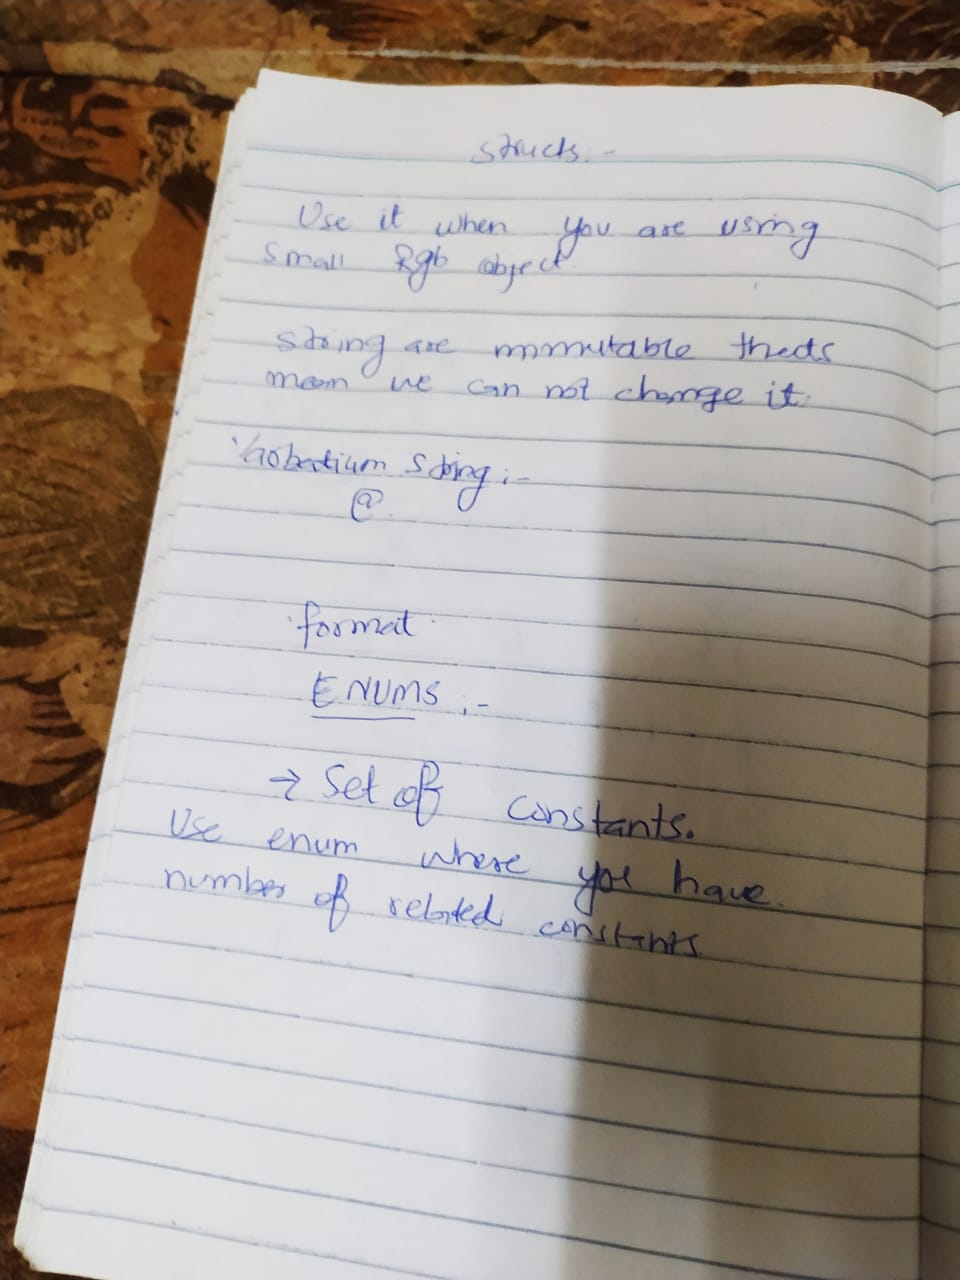 structs:-
Use it when you are using
small Rgb object.
string are immutable thats
mean we can not change it.
string:-
@
format
ENUMS:-
→ Set of constants.
Use enum where you have
number of related constants